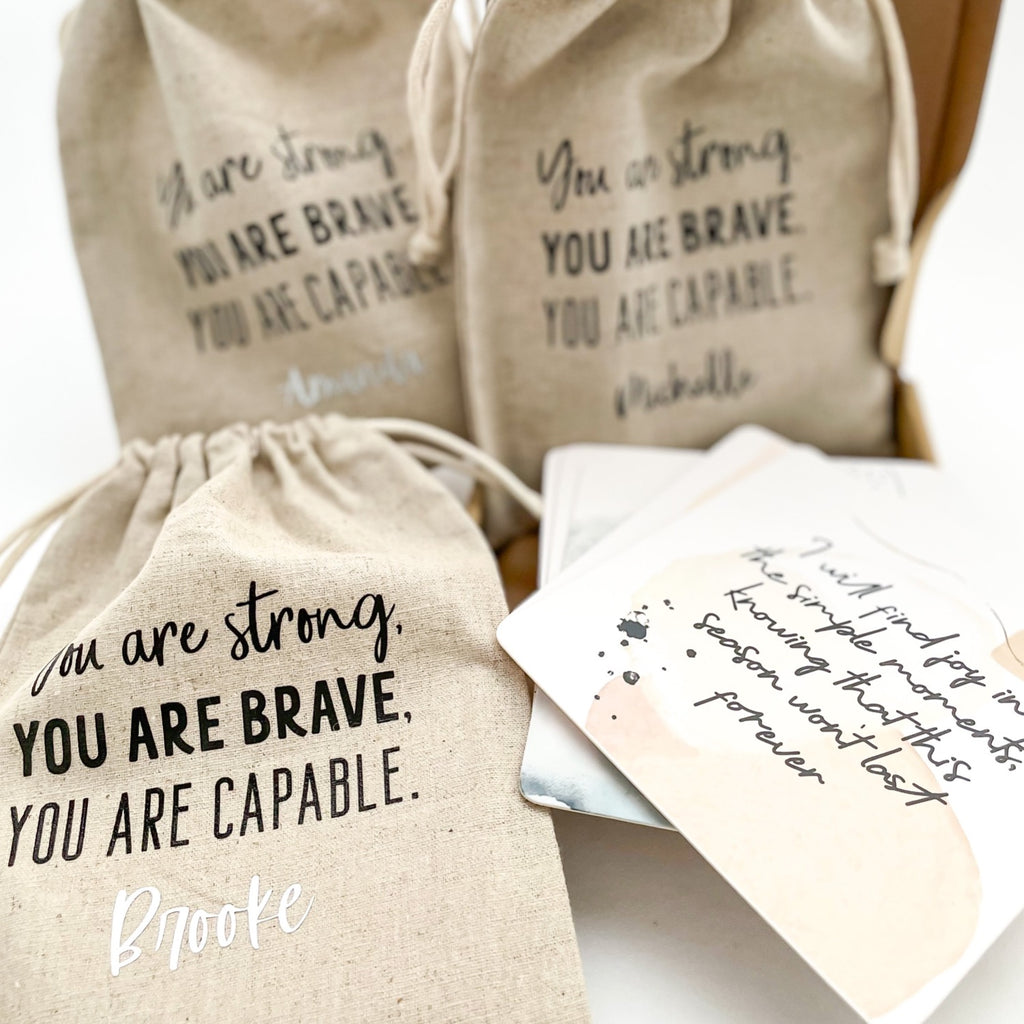 You are strong.
YOU ARE BRAVE.
YOU ARE CAPABLE.
Amanda
You are strong.
YOU ARE BRAVE.
YOU ARE CAPABLE.
Michelle
You are strong,
YOU ARE BRAVE,
YOU ARE CAPABLE.
Brooke
I will find joy in
the simple moments,
knowing that this
season won't last
forever